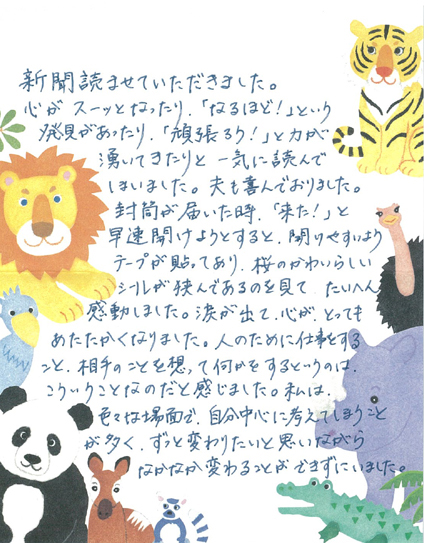 新聞読ませていただきました。
心がスーッとなったり、「なるほど!」という
発見があったり、「頑張ろう!」と力が
湧いてきたりと一気に読んで
しまいました。夫も喜んでおりました。
封筒が届いた時、「来た!」と
早速開けようとすると、開けやすいよう
テープが貼ってあり、桜のかわいらしい
シールが挟んであるのを見て たいへん
感動しました。涙が出て、心が、とっても
あたたかくなりました。人のために仕事をする
こと、相手のことを想って何かをするというのは、
こういうことなのだと感じました。私は、
色々な場面で、自分中心に考えてしまうこと
が多く、ずっと変わりたいと思いながら
なかなか変わることができずにいました。